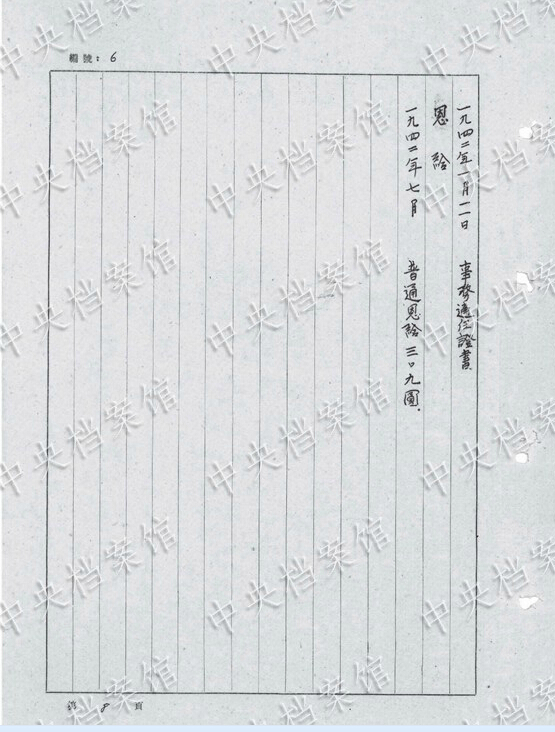 欄號：6
一九四二年一月一一日　事務適任證書
恩給
一九四二年七月　普通恩給三〇九圓.
第 8 頁
中央档案馆